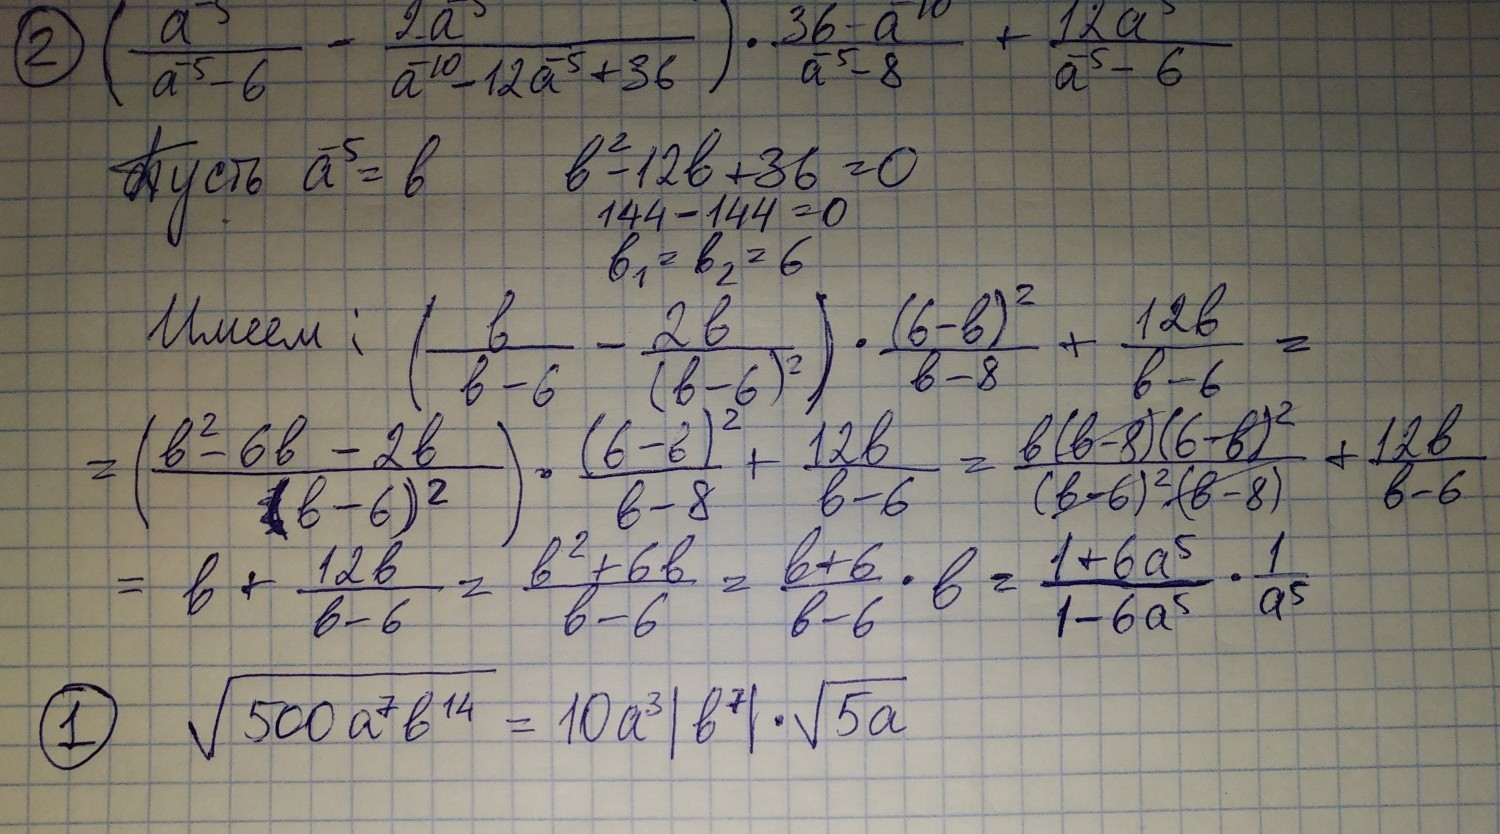 ② (a⁻⁵/(a⁻⁵-6) - 2a⁻⁵/(a⁻¹⁰-12a⁻⁵+36)) · (36-a⁻¹⁰)/(a⁻⁵-8) + 12a⁻⁵/(a⁻⁵-6)
Пусть a⁻⁵ = b b²-12b+36=0
144-144=0
b₁=b₂=6
Имеем: (b/(b-6) - 2b/(b-6)²) · (6-b)²/(b-8) + 12b/(b-6) =
= ((b²-6b-2b)/(b-6)²) · (6-b)²/(b-8) + 12b/(b-6) = b(b-8)(6-b)²/((b-6)²(b-8)) + 12b/(b-6)
= b + 12b/(b-6) = (b²+6b)/(b-6) = (b+6)/(b-6) · b = (1+6a⁵)/(1-6a⁵) · 1/a⁵
① √(500a⁷b¹⁴) = 10a³|b⁷|·√(5a)